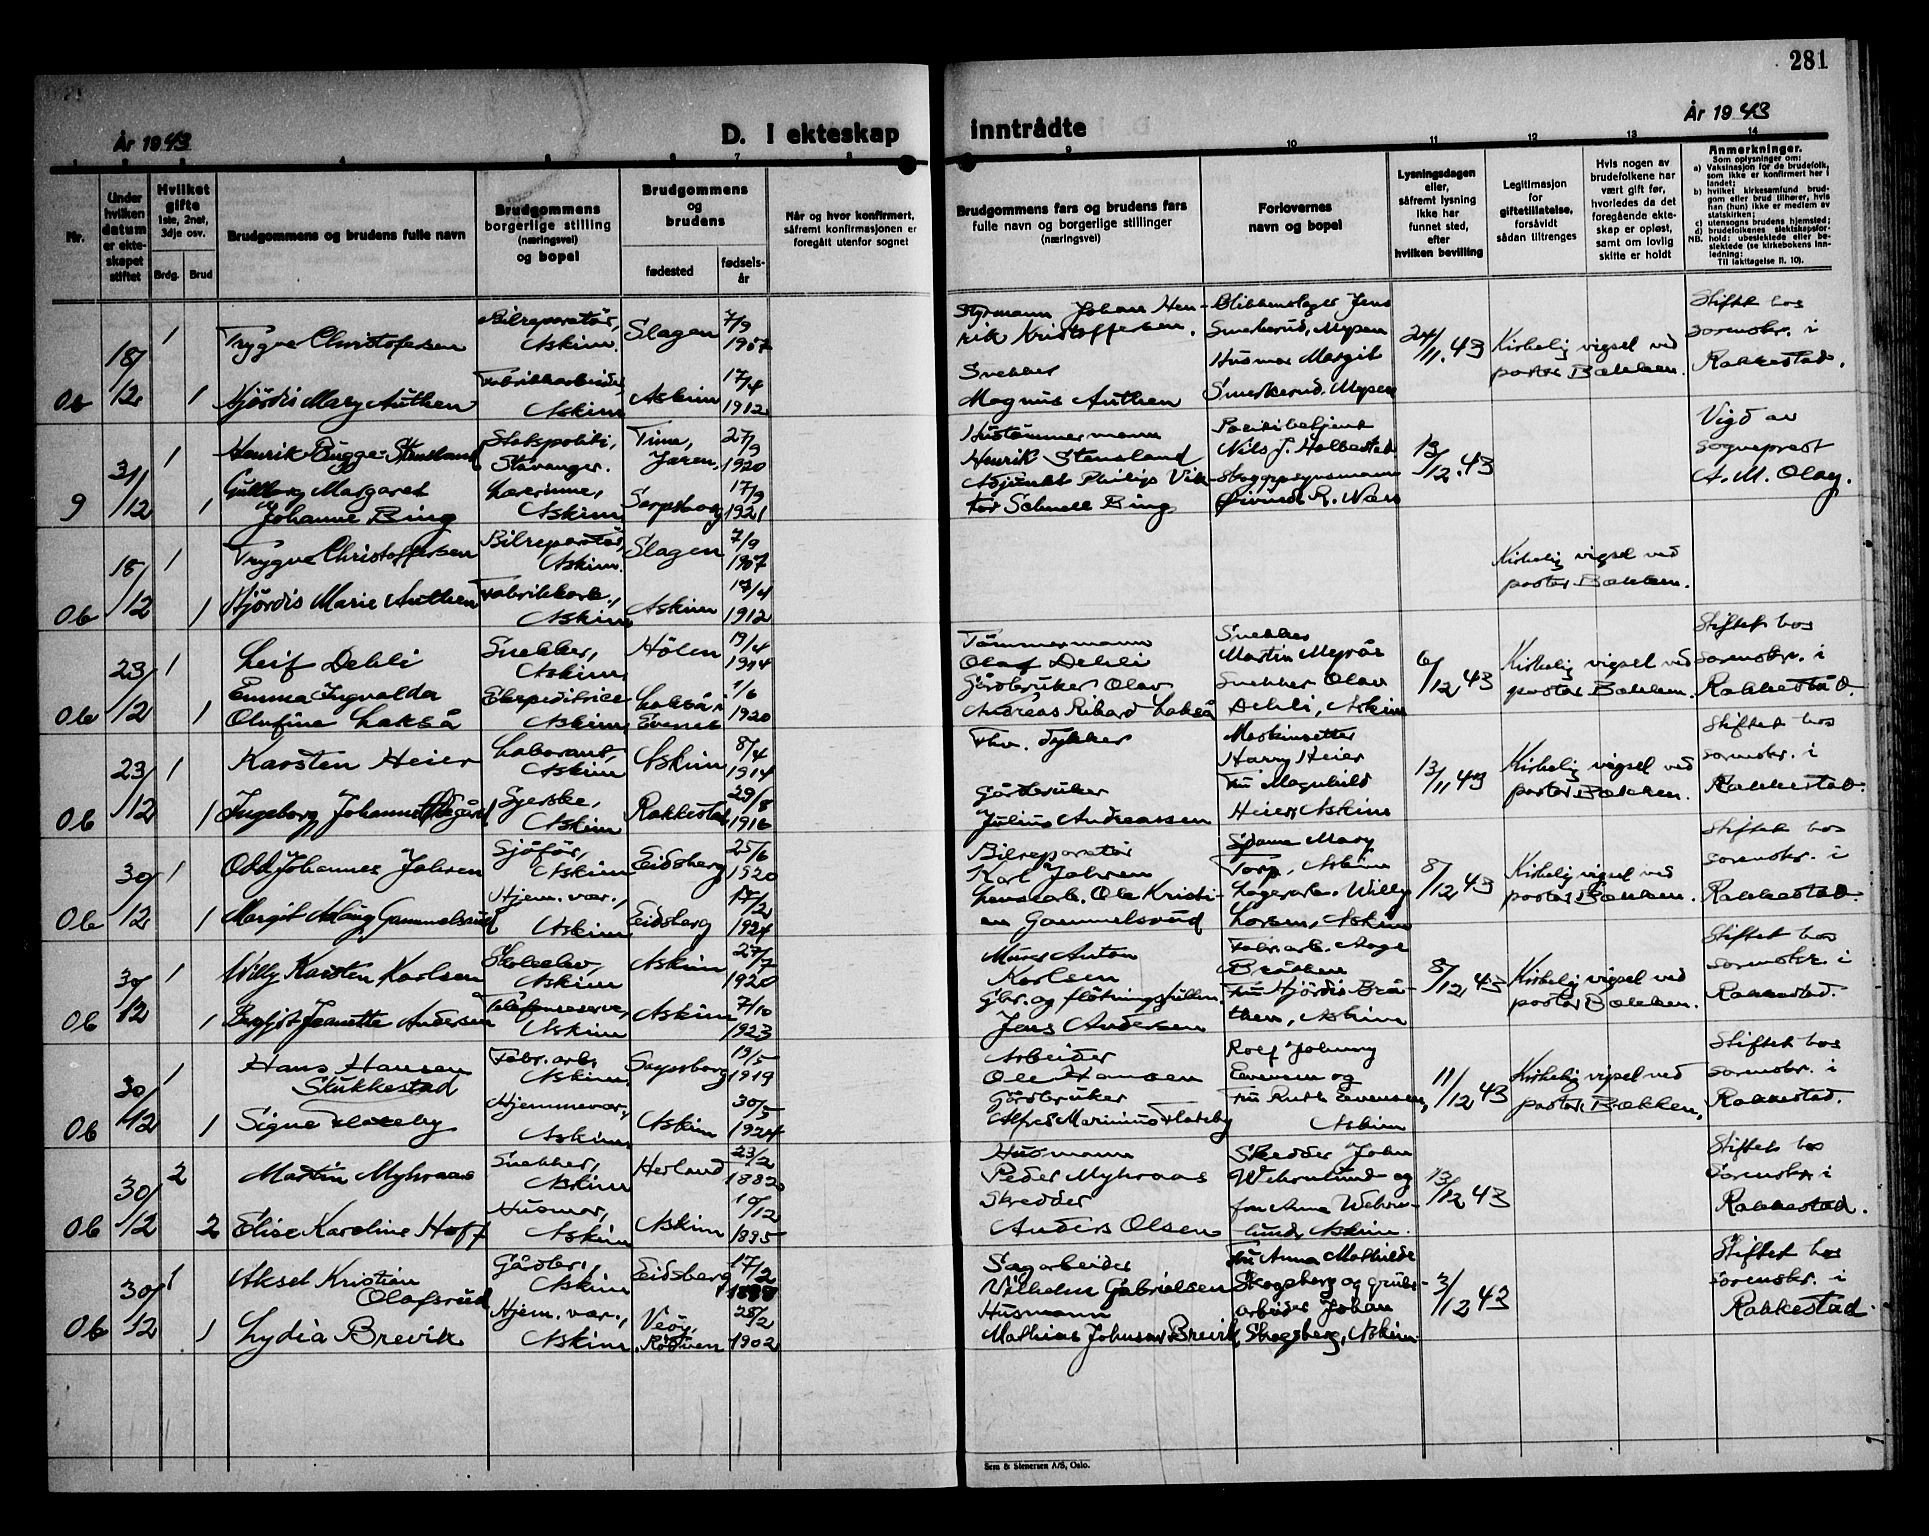 281
År 1943
D. I ekteskap inntrådte
År 1943
1 2 3 4 5 6 7 8 9 10 11 12 13 14
Nr.
Under hvilken datum er ekteskapet stiftet
Hvilket gifte
1ste, 2net, 3dje osv.
Brdg. Brud
Brudgommens og brudens fulle navn
Brudgommens
borgerlige stilling
(næringsvei)
og bopel
Brudgommens
og
brudens
fødested
fødsels-
år
Når og hvor konfirmert,
såfremt konfirmasjonen er
foregått utenfor sognet
Brudgommens fars og brudens fars
fulle navn og borgerlige stillinger
(næringsvei)
Forlovernes
navn og bopel
Lysningsdagen
eller,
såfremt lysning
ikke har
funnet sted,
efter
hvilken bevilling
Legitimasjon
for
giftetillatelse,
forsåvidt
sådan tiltrenges
Hvis nogen av
brudefolkene har
vært gift før,
hvorledes da det
foregående ekte-
skap er opløst,
samt om lovlig
skifte er holdt
Anmerkninger.
Som oplysninger om:
a) Vaksinasjon for de brudefolk,
som ikke er konfirmert her i
landet;
b) hvilket kirkesamfund brud-
gom eller brud tilhører, hvis
han (hun) ikke er medlem av
statskirken;
c) utensogns brudens hjemsted;
d) brudefolkenes slektskapsfor-
NB. hold: ubeslektede eller be-
slektede (se kirkebokens inn-
ledning:
Til iakttagelse II. 10).
18/12 1 Trygve Christofersen Bilreparatør, Askim. Slagen 7/9 1907 Styrmann Johan Hen-
rik Kristoffersen. Blikkenslager Jens Smerkerud, Mysen 24/11.43 Kirkelig vigsel ved pastor Bækken. Stiftet hos sorenskr. i Rakkestad.
Ob 1 Hjördis Mary Authen Fabrikkarbeider, Askim Askim 17/4 1912 Snekker Magnus Authen Husmor Margit Smerkerud, Mysen
31/12 1 Henrik Bugge-Stensland Statspoliti, Stavanger. Time, Jæren 27/9 1920 Hustömmermann Henrik Stensland Politibetjent Nils J. Holbestad 13/12.43 Vigd av sogneprest A. M. Olay.
9 1 Gudborg Margaret Johanne Bing Lærerinne, Askim Sarpsborg 17/9 1921 Adjunkt Philip Vik-
tor Schnell Bing Öivind R. Næss
18/12 1 Trygve Christoffersen Bilreparatør, Askim. Slagen 7/9 1907 Kirkelig vigsel ved pastor Bækken.
Ob 1 Hjördis Marie Authen Fabrikkarb., Askim Askim 17/4 1912
23/12 1 Leif Dehli Snekker, Askim Hölen 19/4 1914 Tömmermann Olaf Dehli Snekker Martin Myrås 6/12 43 Kirkelig vigsel ved pastor Bækken. Stiftet hos sorenskr. i Rakkestad.
Ob 1 Emma Ingvalda Olufine Lakså Ekspeditrice Askim Lakså i Evenes 1/6 1920 Gårdbruker Olav Andreas Rikard Lakså Snekker Olav Dehli, Askim
23/12 1 Karsten Heier Laborant, Askim Askim 8/4 1914 Fhv. Fykker Maskinsetter Harry Heier 13/11 43 Kirkelig vigsel ved pastor Bækken. Stiftet hos sorenskr. i Rakkestad.
Ob 1 Ingeborg Johanne Syerske, Askim Rakkestad 29/8 1916 Gårdbruker Julius Andreassen Fru Magnhild Heier, Askim
30/12 1 Odd Johannes Jahren Sjåför, Askim Eidsberg 25/6 1920 Bilreparatør Karl Jahren Mary Torp, Askim 8/12 43 Kirkelig vigsel ved pastor Bækken. Stiftet hos sorenskr. i Rakkestad.
Ob 1 Margit Gammelsrud Hjem. vær., Askim Eidsberg 17/2 1924 Ole Kristi-
an Gammelsrud Lagerarb. Willy Larsen, Askim
30/12 1 Willy Karsten Karlsen Askim Askim 27/7 1920 Murer Anton Karlsen Fabr. arb. Aage Bråthen 8/12 43 Kirkelig vigsel ved pastor Bækken. Stiftet hos sorenskr. i Rakkestad.
Ob 1 Bergljot Jeanette Andersen Askim Askim 7/10 1923 Gbr. og flötningsfullm. Jens Andersen Fru Hjördis Brå-
then, Askim
30/12 1 Hans Hansen Stukkestad Fabr. arb. Askim Sarpsborg 19/5 1919 Arbeider Ole Hansen Rolf Johnny Evensen og 11/12 43 Kirkelig vigsel ved pastor Bækken, Stiftet hos sorenskr. i Rakkestad.
Ob 1 Signe Flateby Hjemmevær., Askim Askim 30/5 1924 Gårdbruker Alfred Marinius Flateby Fru Ruth Evensen, Askim
30/12 2 Martin Myhraas Snekker, Askim Herland 23/2 1882 Husmann Peder Myhraas Skredder John Wehnlund og 13/12 43 Stiftet hos Sorenskr. i Rakkestad.
Ob 2 Elise Karoline Hoff Husmor, Askim Askim 10/12 1895 Skredder Anders Olsen fru Anna Wehn-
lund, Askim.
30/12 1 Aksel Kristian Olafsrud Gårdbr., Askim Eidsberg 17/2 Sagarbeider Vilhelm Gabrielsen Fru Anna Mathilde Skogsberg og grube-
3/12 43 Stiftet hos sorenskr. i Rakkestad.
Ob 1 Lydia Brevik Hjem. vær., Askim Veöy, 28/2 1902 Husmann Mathias Johnsen Brevik arbeider Johan Skogsberg, Askim.
Sem & Stenersen A/S, Oslo.